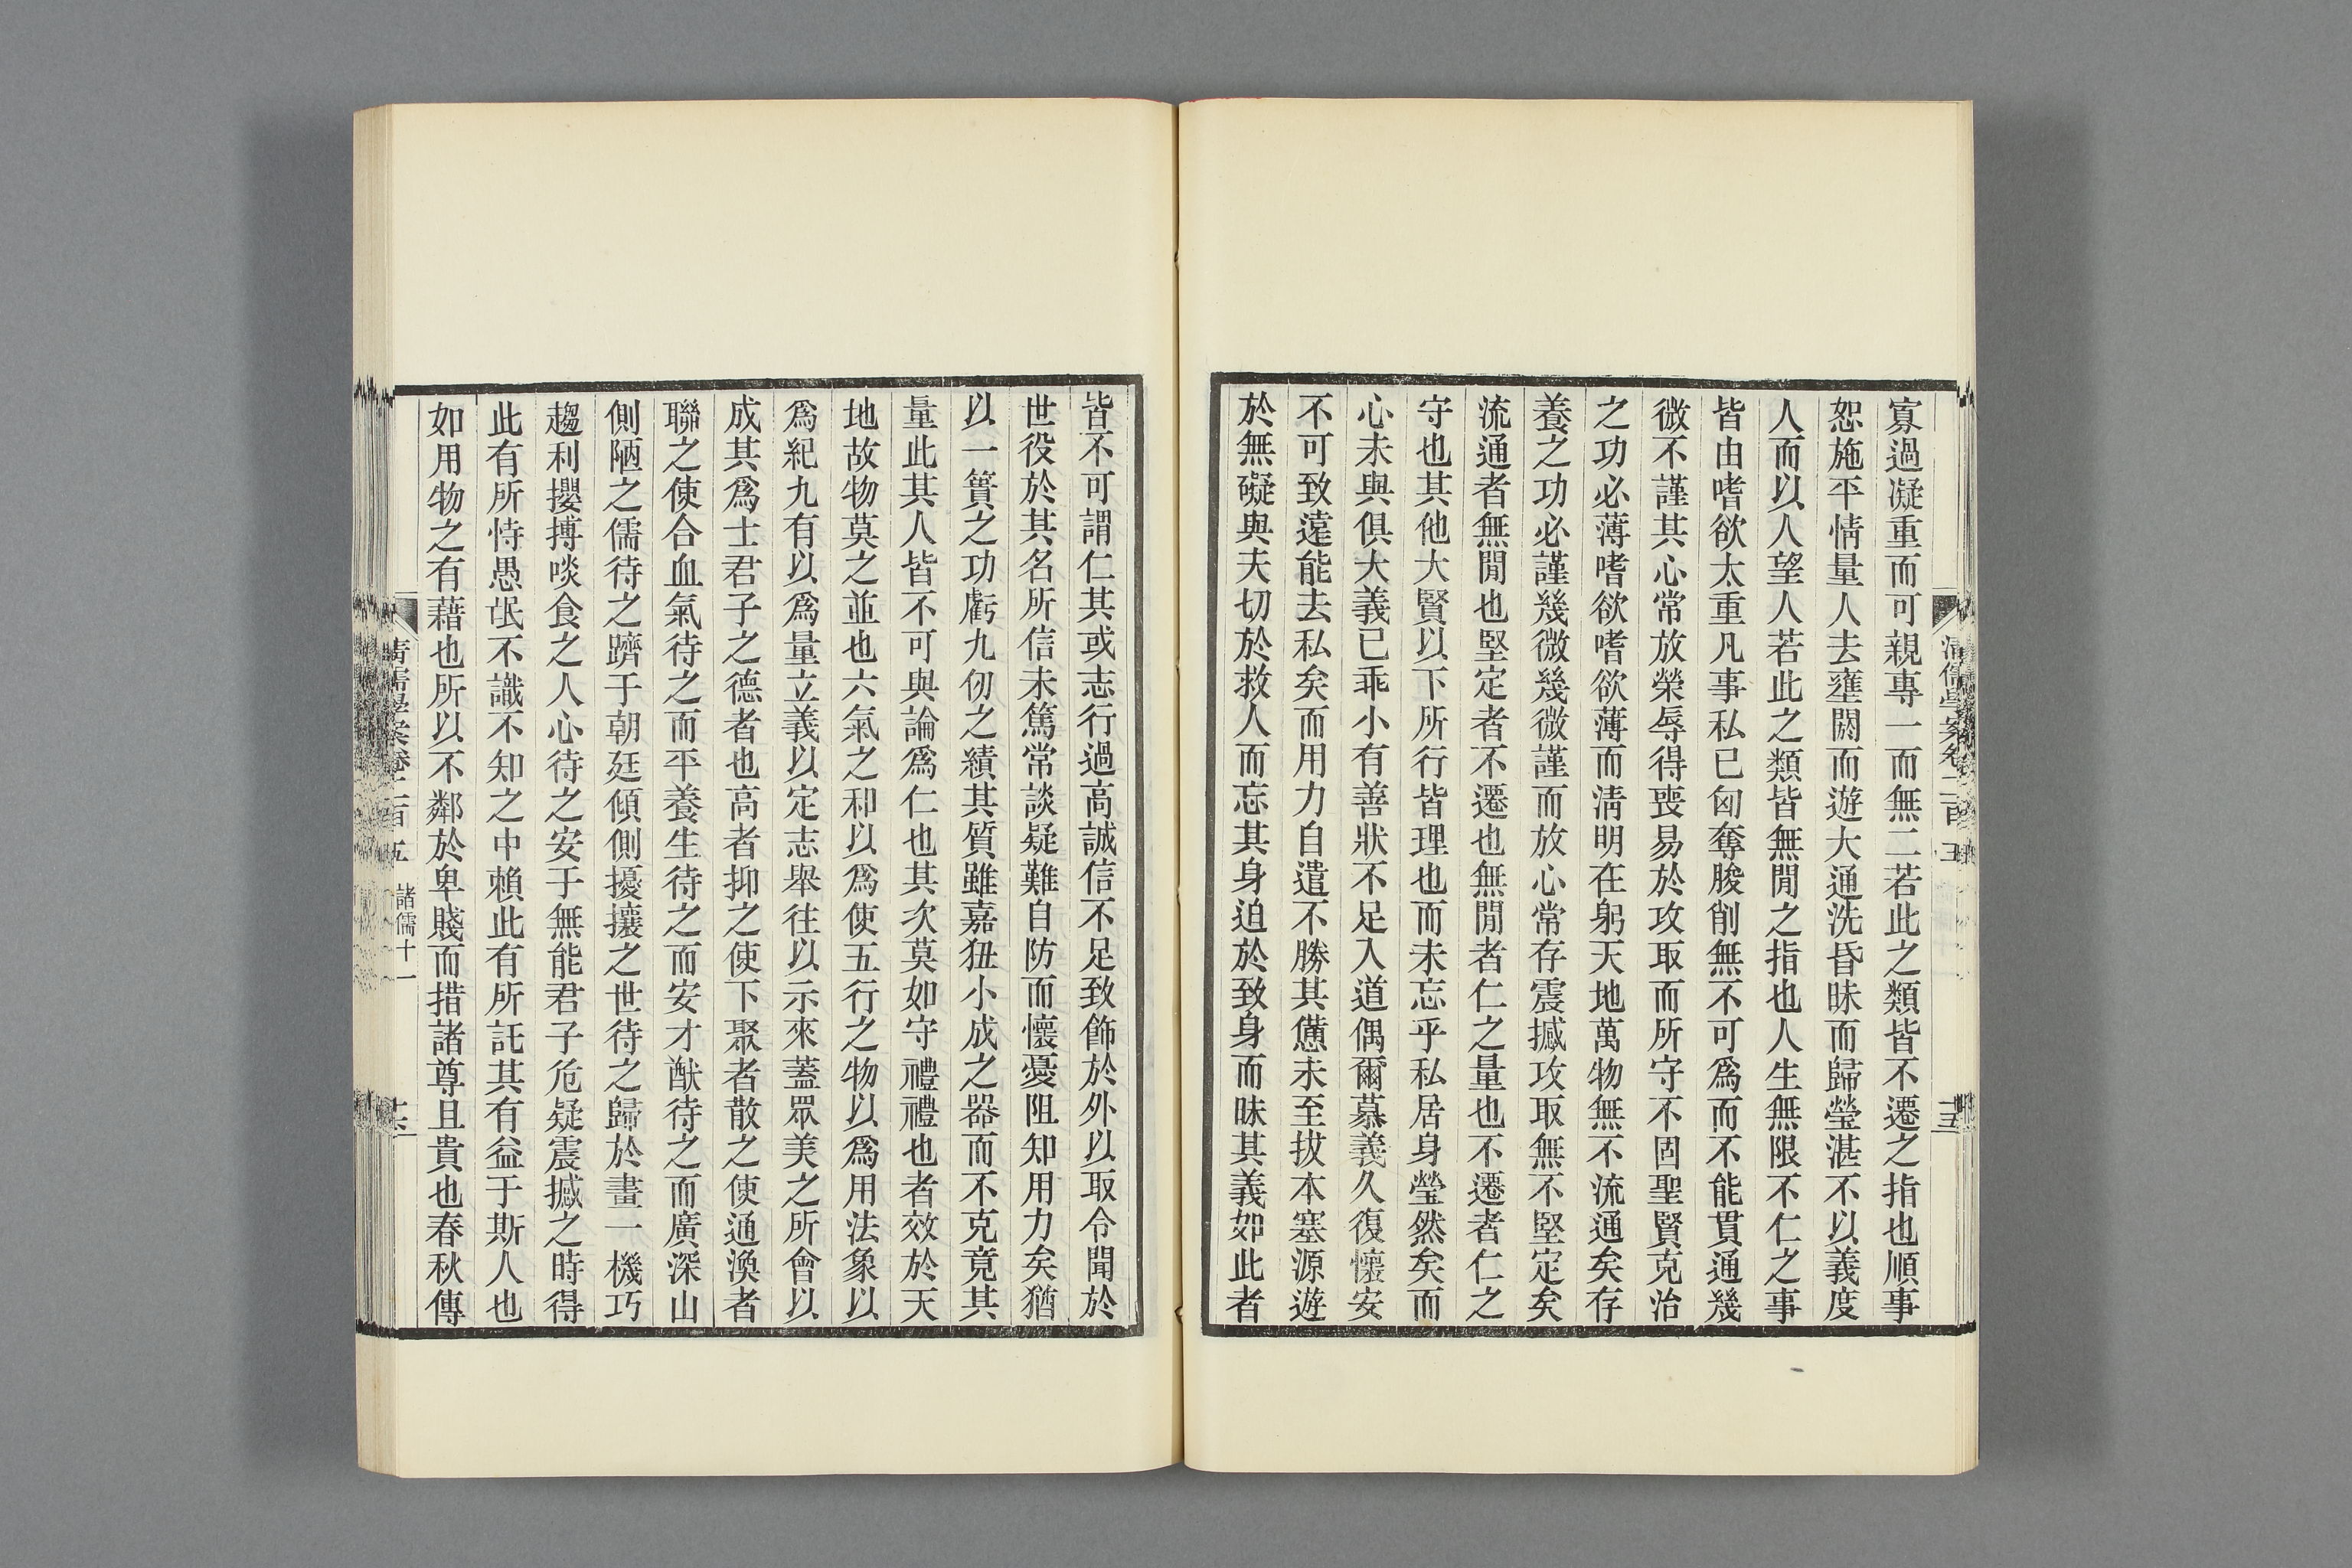 寡過凝重而可親專一而無二若此之類皆不遷之指也順事
恕施平情量人去壅閼而遊大通洗昏昧而歸瑩湛不以義度
人而以人望人若此之類皆無閒之指也人生無限不仁之事
皆由嗜欲太重凡事私已匈奪朘削無不可爲而不能貫通幾
微不謹其心常放榮辱得喪易於攻取而所守不固聖賢克治
之功必薄嗜欲嗜欲薄而淸明在躬天地萬物無不流通矣存
養之功必謹幾微幾微謹而放心常存震撼攻取無不堅定矣
流通者無閒也堅定者不遷也無閒者仁之量也不遷者仁之
守也其他大賢以下所行皆理也而未忘乎私居身瑩然矣而
心未與俱大義已乖小有善狀不足入道偶爾慕義久復懷安
不可致遠能去私矣而用力自遣不勝其憊未至拔本塞源遊
於無礙與夫切於救人而忘其身迫於致身而昧其義如此者
清儒學案卷二百五
十五
皆不可謂仁其或志行過高誠信不足致飾於外以取令聞於
世役於其名所信未篤常談疑難自防而懷憂阻知用力矣猶
以一簣之功虧九仞之績其質雖嘉狃小成之器而不克竟其
量此其人皆不可與論爲仁也其次莫如守禮禮也者效於天
地故物莫之並也六氣之和以爲使五行之物以爲用法象以
爲紀九有以爲量立義以定志舉往以示來蓋眾美之所會以
成其爲士君子之德者也高者抑之使下聚者散之使通渙者
聯之使合血氣待之而平養生待之而安才猷待之而廣深山
側陋之儒待之躋于朝廷傾側擾攘之世待之歸於畫一機巧
趨利攫搏啖食之人心待之安于無能君子危疑震撼之時得
此有所恃愚氓不識不知之中賴此有所託其有益于斯人也
如用物之有藉也所以不鄰於卑賤而措諸尊且貴也春秋傳
清儒學案卷二百五 諸儒十一
十六